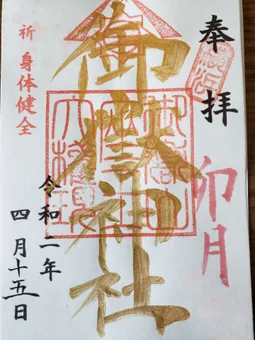 奉拝
卯月
御嶽神社
祈 身体健全
令和二年
四月十五日